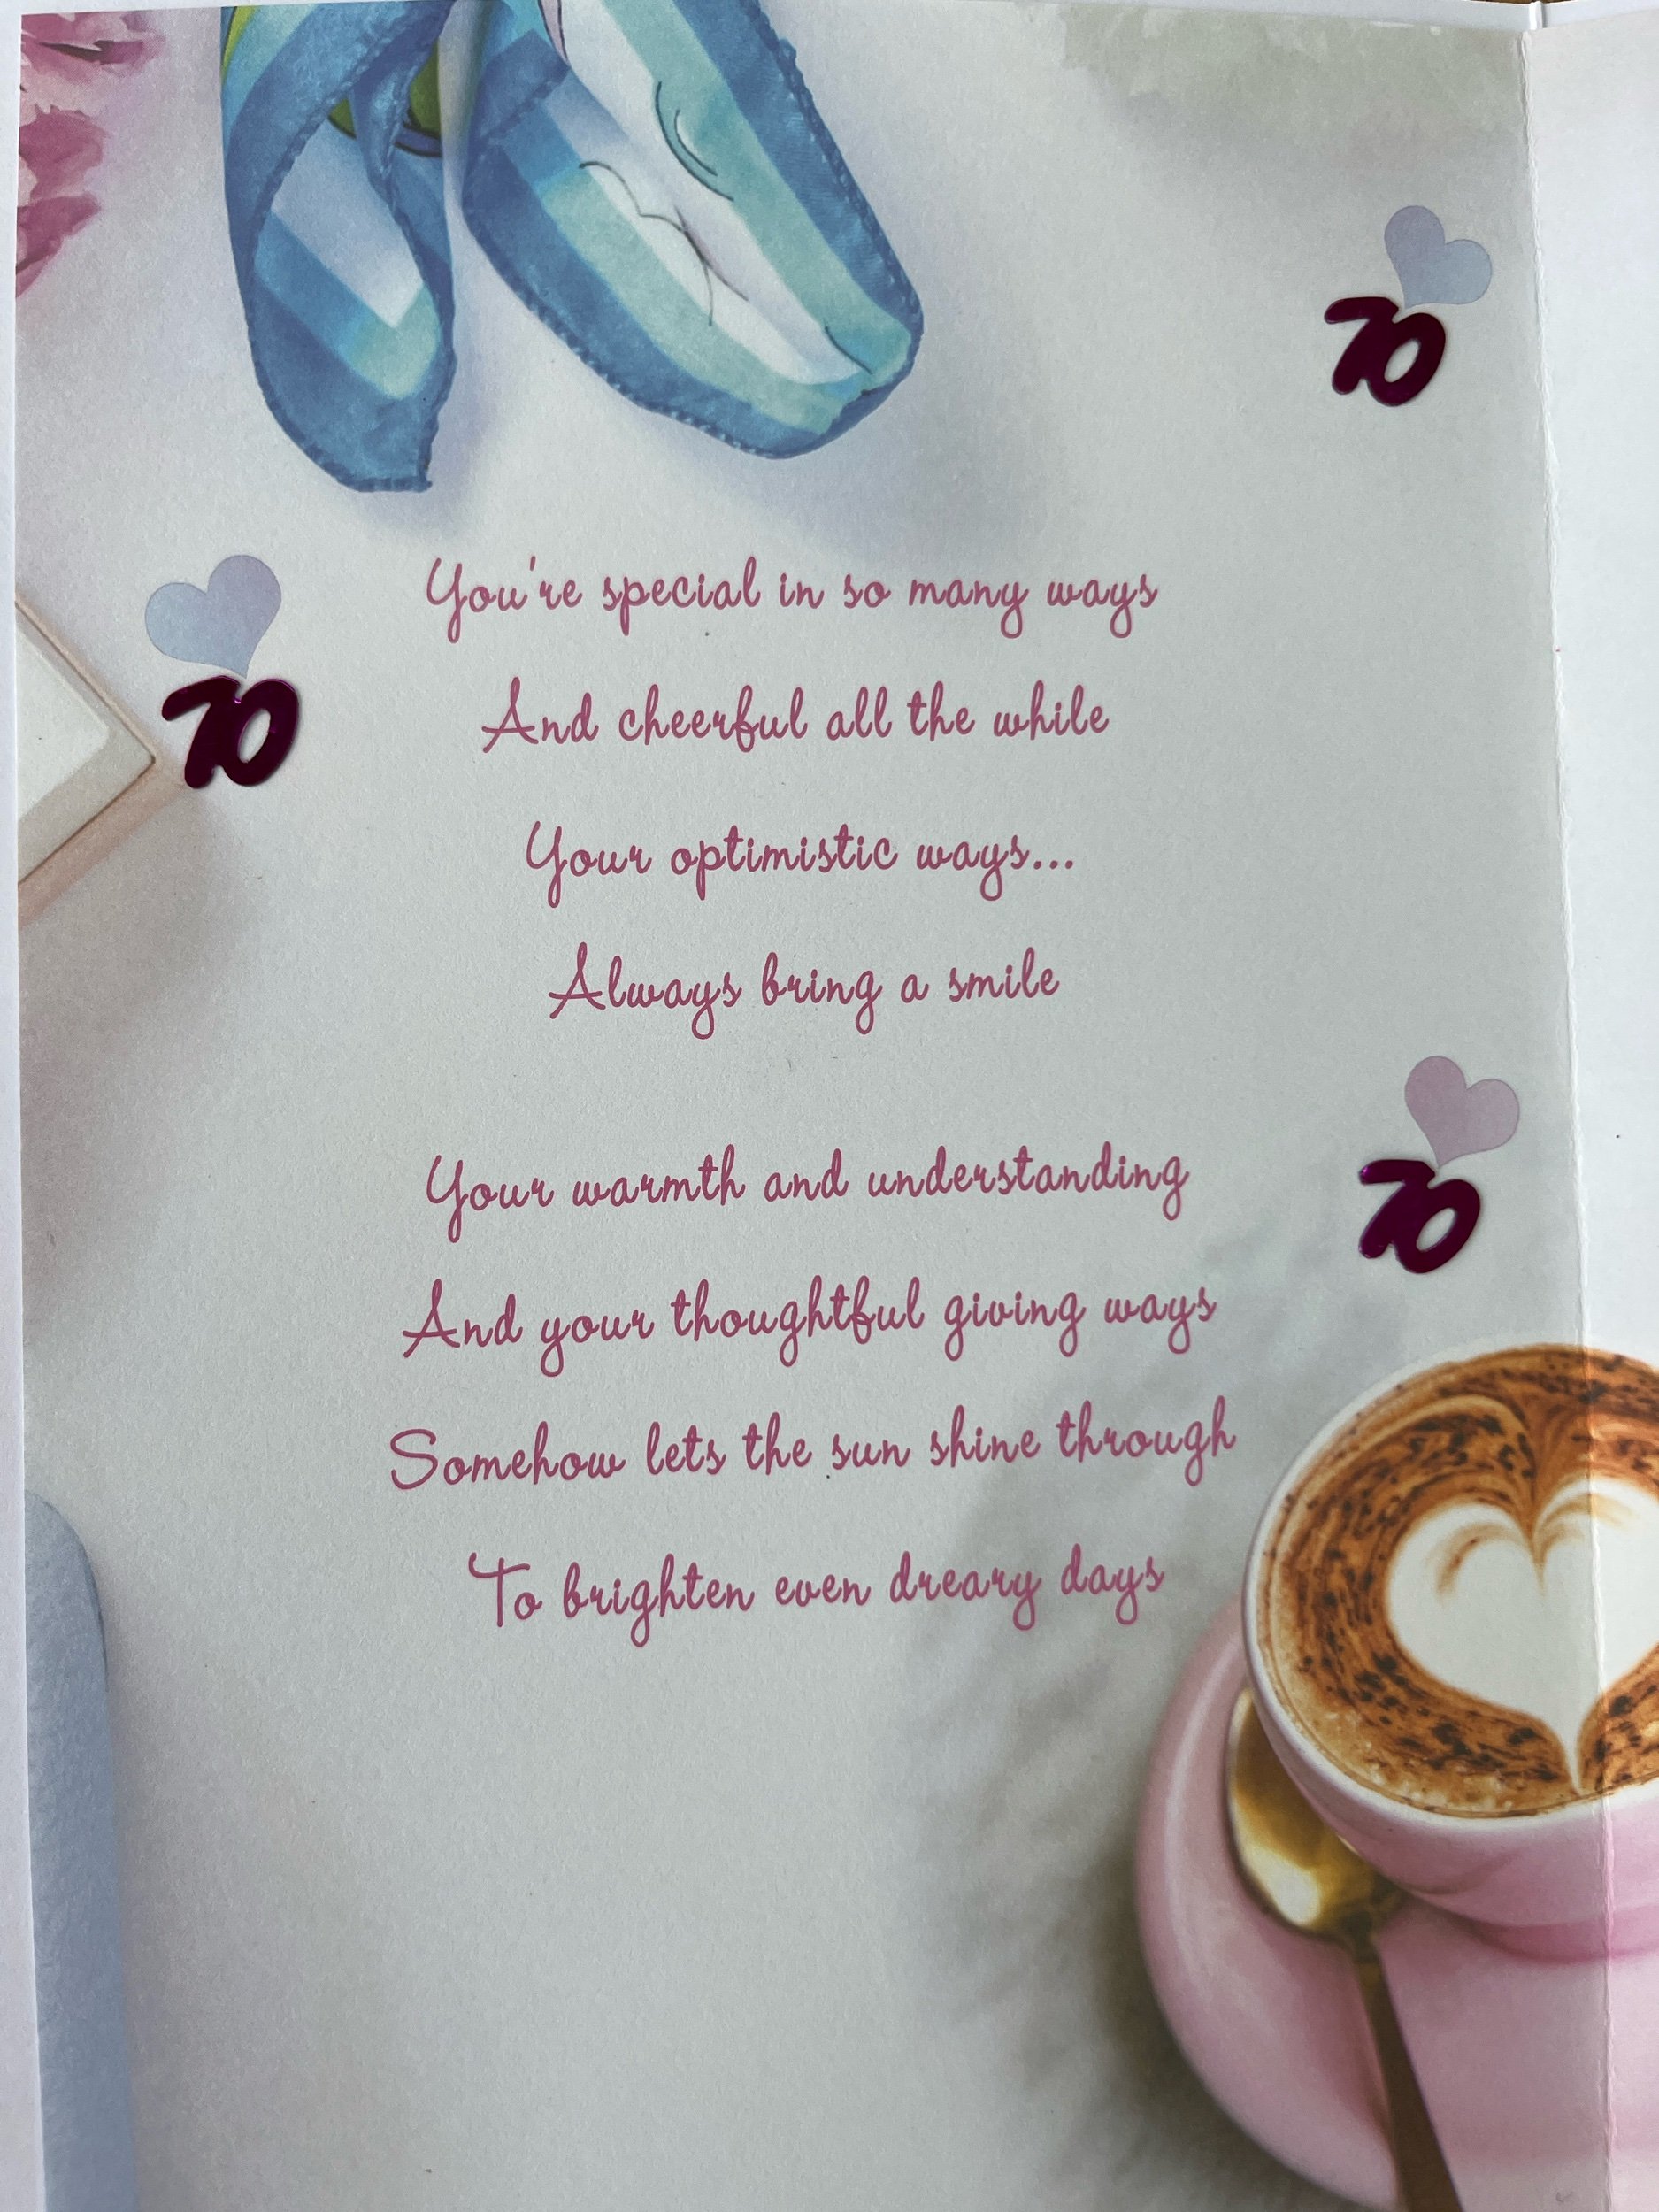 70
You're special in so many ways
70
And cheerful all the while
Your optimistic ways...
Always bring a smile
Your warmth and understanding
70
And your thoughtful giving ways
Somehow lets the sun shine through
To brighten even dreary days